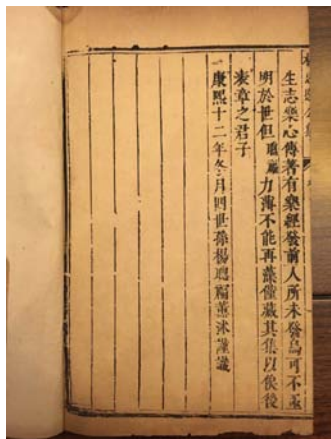 生志樂心傳著有樂經發前人所未發烏可不亟
明於世但聰福力薄不能再藻僅藏其集以俟後
表章之君子
康熙十二年冬月四世孫楊聰福薰沐謹識